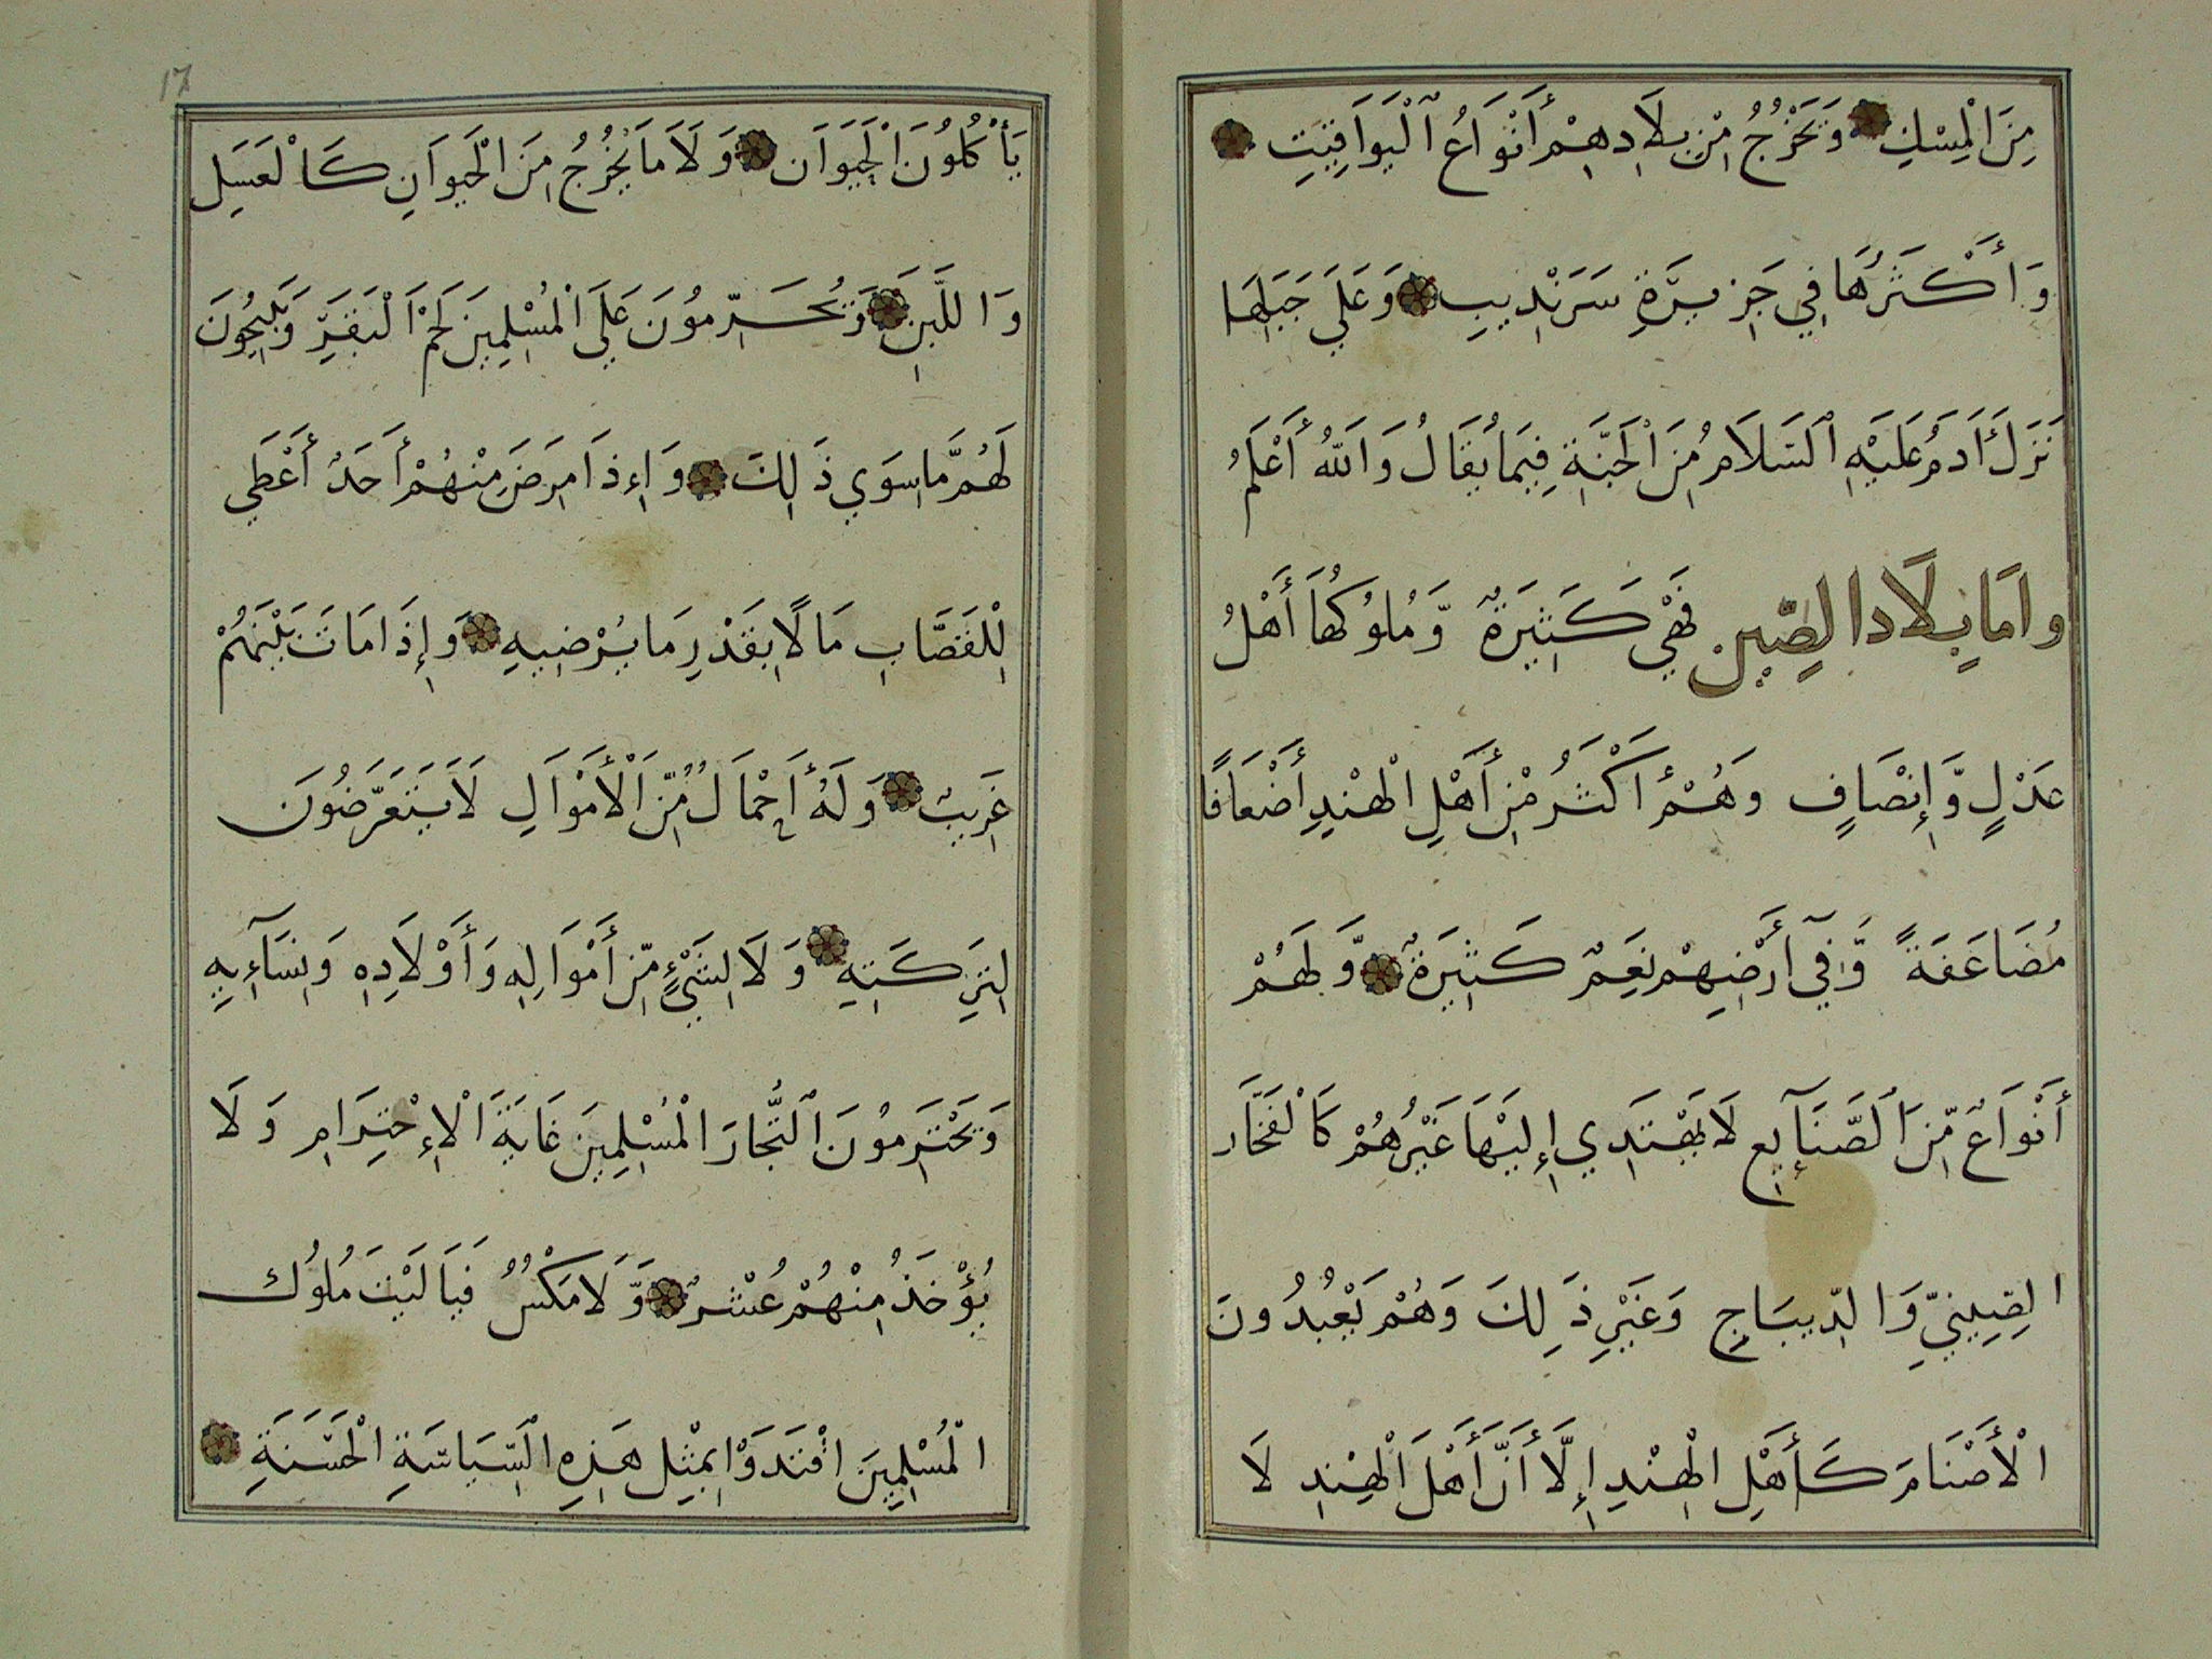 مِنَ الْمِسْكِ وَتَخْرُجُ مِنْ بِلَادِهِمْ أَنْوَاعُ الْيَوَاقِيتِ
وَأَكْثَرُهَا فِي جَزِيرَةِ سَرَنْدِيبِ وَعَلَي جَبَلِهَا
نَزَلَ أَدَمُ عَلَيْهِ السَّلَامُ مِنَ الْجَنَّةِ فِيمَا يُقَالُ وَاللهُ أَعْلَمُ
وامَا بِلَاد الصِّين فَهِيَ كَثِيرَةٌ وَّمُلُوكُهَا أَهْلُ
عَدْلٍ وَّإِنْصَافٍ وَهُمْ أَكْثَرُ مِنْ أَهْلِ الْهِنْدِ أَضْعَافًا
مُضَاعَفَةً وَّفِي أَرْضِهِمْ نِعَمٌ كَثِيرَةٌ وَّلَهُمْ
أَنْوَاعٌ مِّنَ الصَّنَآئِعِ لَا يَهْتَدِي إِلَيْهَا غَيْرُهُمْ كَالْفَخَّارِ
الصِّينِيِّ وَالدِّيبَاجِ وَغَيْرِ ذَلِكَ وَهُمْ يَعْبُدُونَ
الْأَصْنَامَ كَأَهْلِ الْهِنْدِ إِلَّا أَنَّ أَهْلَ الْهِنْدِ لَا
17
يَأْكُلُونَ الْحَيَوَان وَلَا مَا يَخْرُجُ مِنَ الْحَيوَانِ كَالْعَسَلِ
وَاللَّبَنِ وَيُحَرِّمُونَ عَلَي الْمُسْلِمِينَ لَحْمَ الْبَقَرِ وَيُبِيحُونَ
لَهُم مَّا سِوَي ذَلِكَ وَإِذَا مَرِضَ مِنْهُمْ أَحَدٌ أَعْطَي
لِلْقَصَّابِ مَالًا بِقَدْرِ مَا يُرْضِيهِ وَإِذَا مَاتَ بَيْنَهُمْ
غَرِيبٌ وَلَهُ أَحْمَالٌ مِّنَ الْأَمْوَالِ لَا يَتَعَرَّضُونَ
لِتَرِكَتِهِ وَلَا لِشَيْءٍ مِّنْ أَمْوَالِهِ وَأَوْلَادِهِ وَنِسَآءِيهِ
وَيَحْتَرِمُونَ التُّجَّارَ الْمُسْلِمِينَ غَايَةَ الْإِحْتِرَامِ وَلَا
يُؤْخَذُ مِنْهُمْ عُشْرٌ وَّلَا مَكْسٌ فَيَا لَيْتَ مُلُوكَ
الْمُسْلِمِينَ اقْتَدَوْا بِمِثْلِ هَذِهِ السِّيَاسَةِ الْحَسَنَةِ